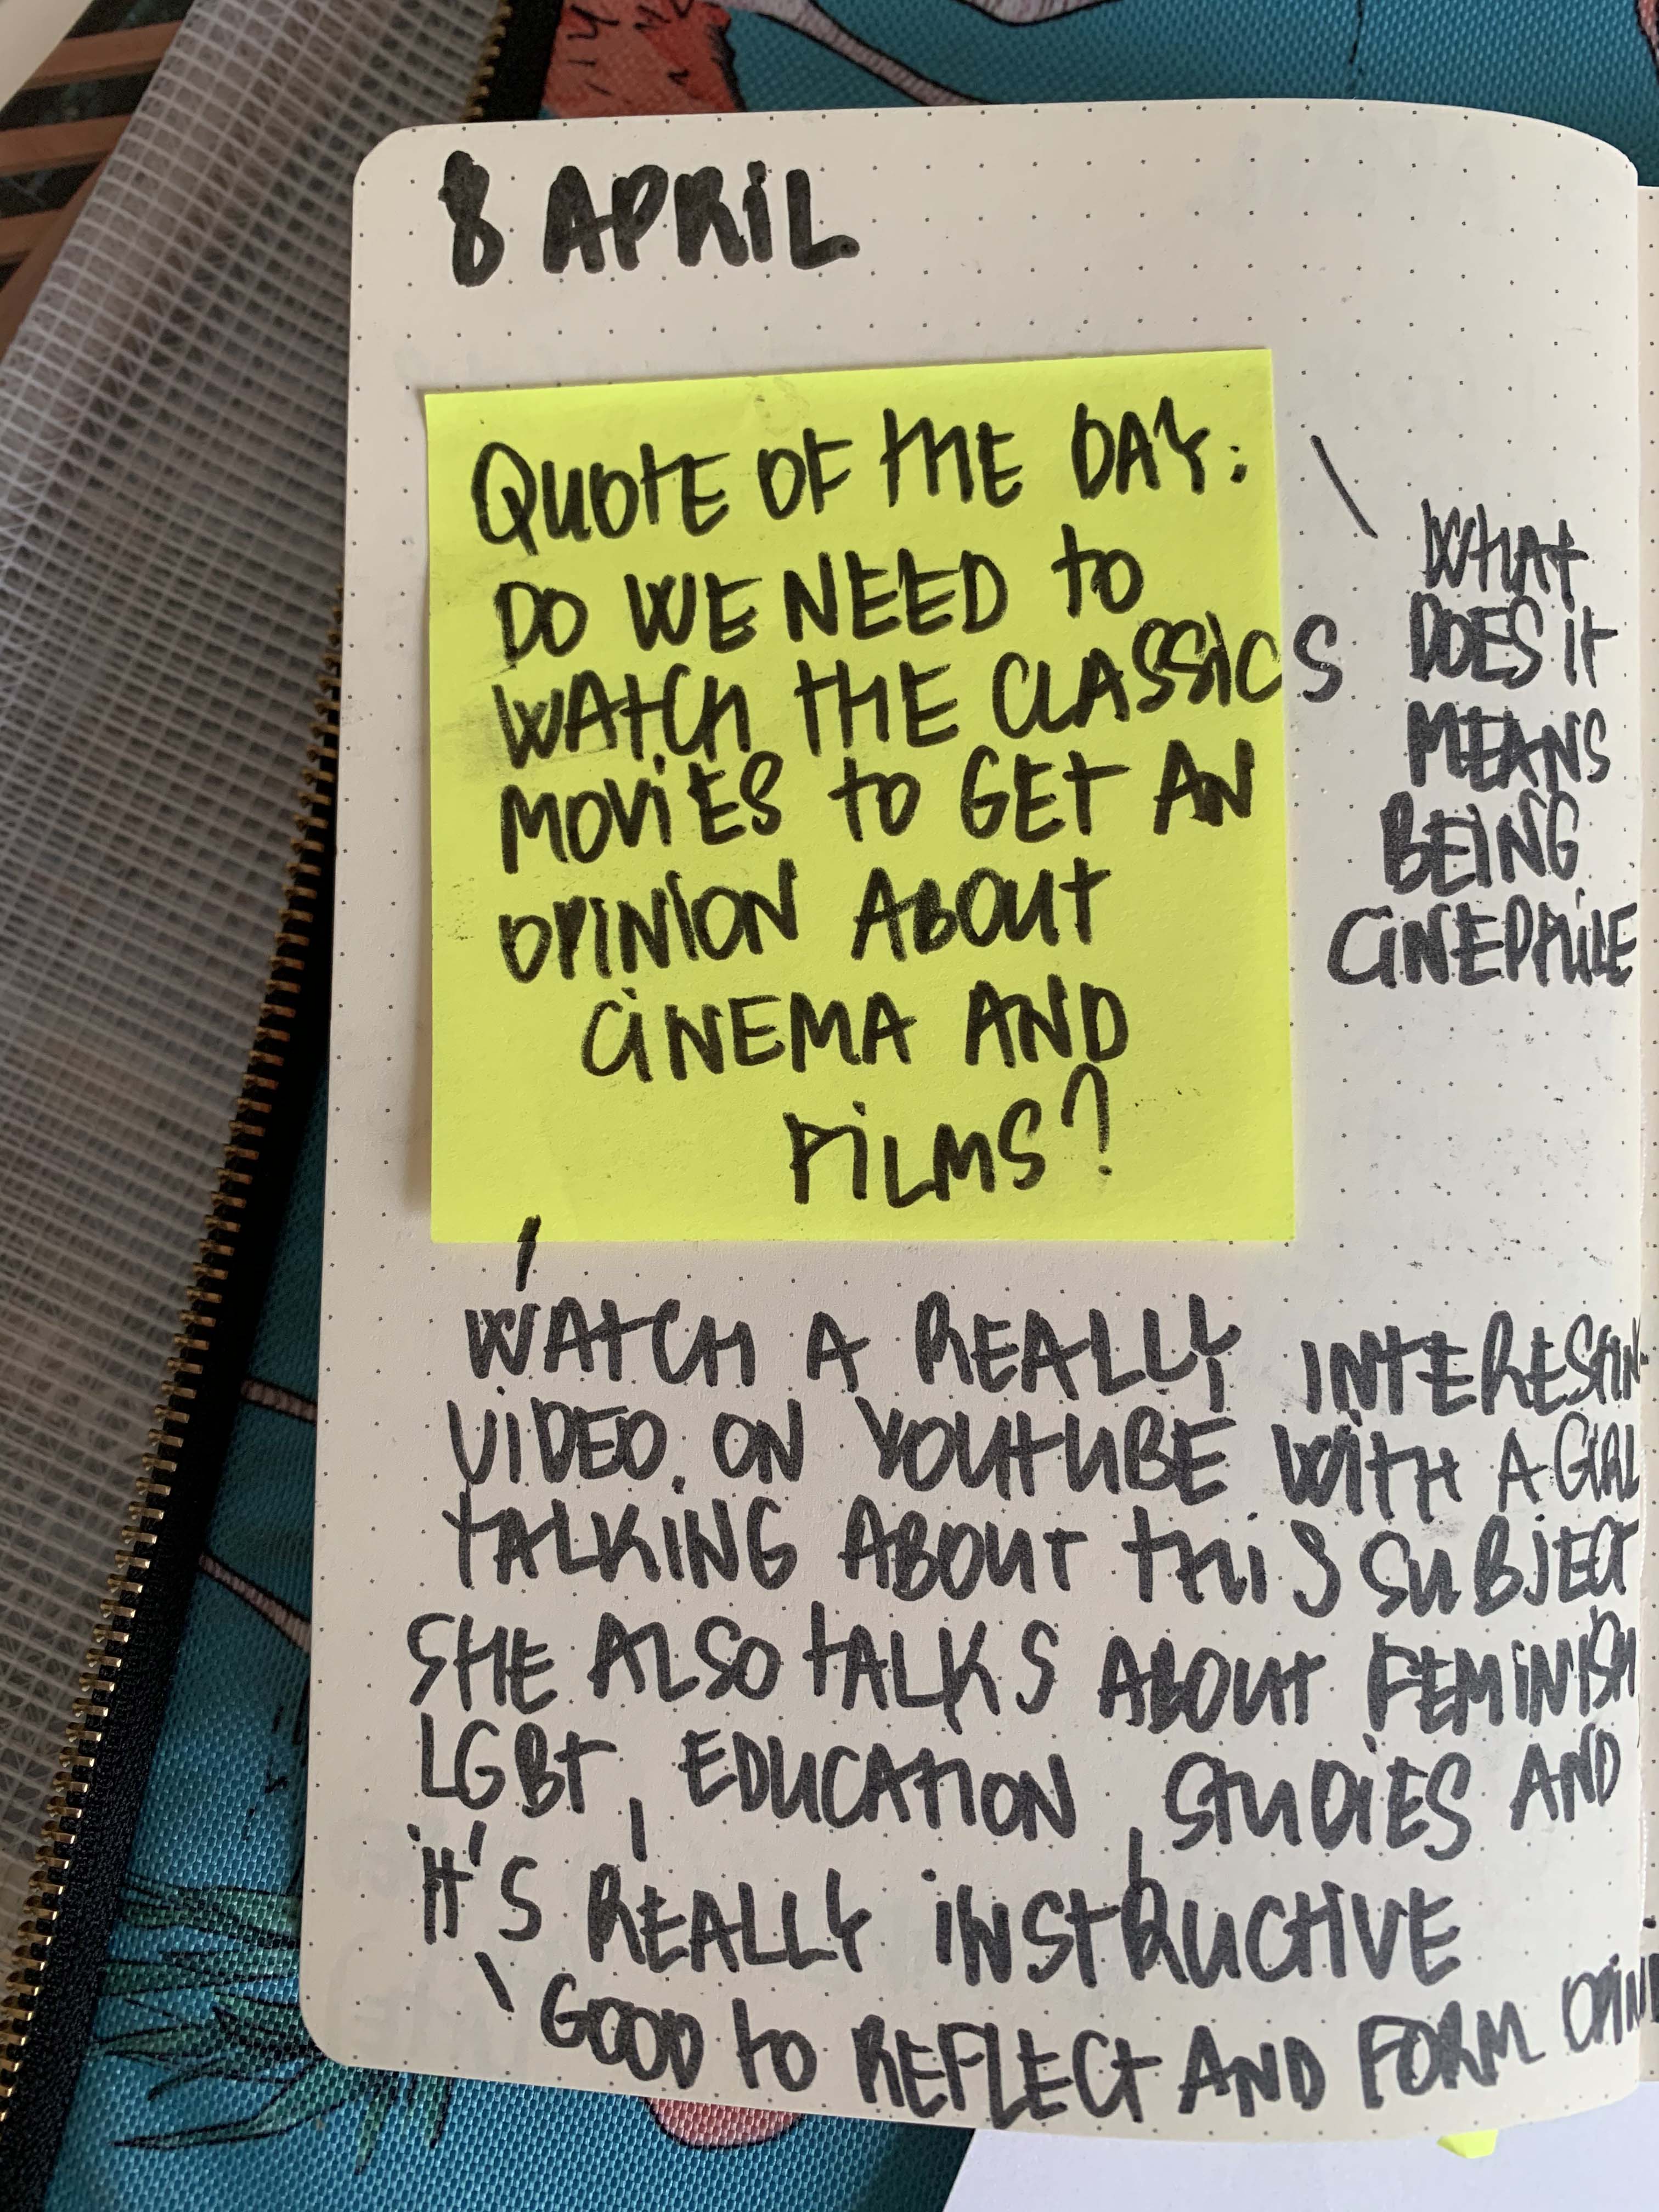 8 APRiL
QUOTE OF THE DAY:
DO WE NEED to
WATCH THE CLASSICS
MOViES to GET AN
OPINION ABOUT
CiNEMA AND
FiLMS?
WHAT
DOES IT
MEANS
BEING
CINEPHILE
WATCH A REALLY INTERESTIN
ViDEO ON YOUTUBE WITH A GIRL
TALKING ABOUT THIS SUBJECT
SHE ALSO TALKS ABOUT FEMINISM
LGBT, EDUCATION, STUDIES AND
IT'S REALLY INSTRUCTIVE
GOOD to REFLECT AND FORM OPIN